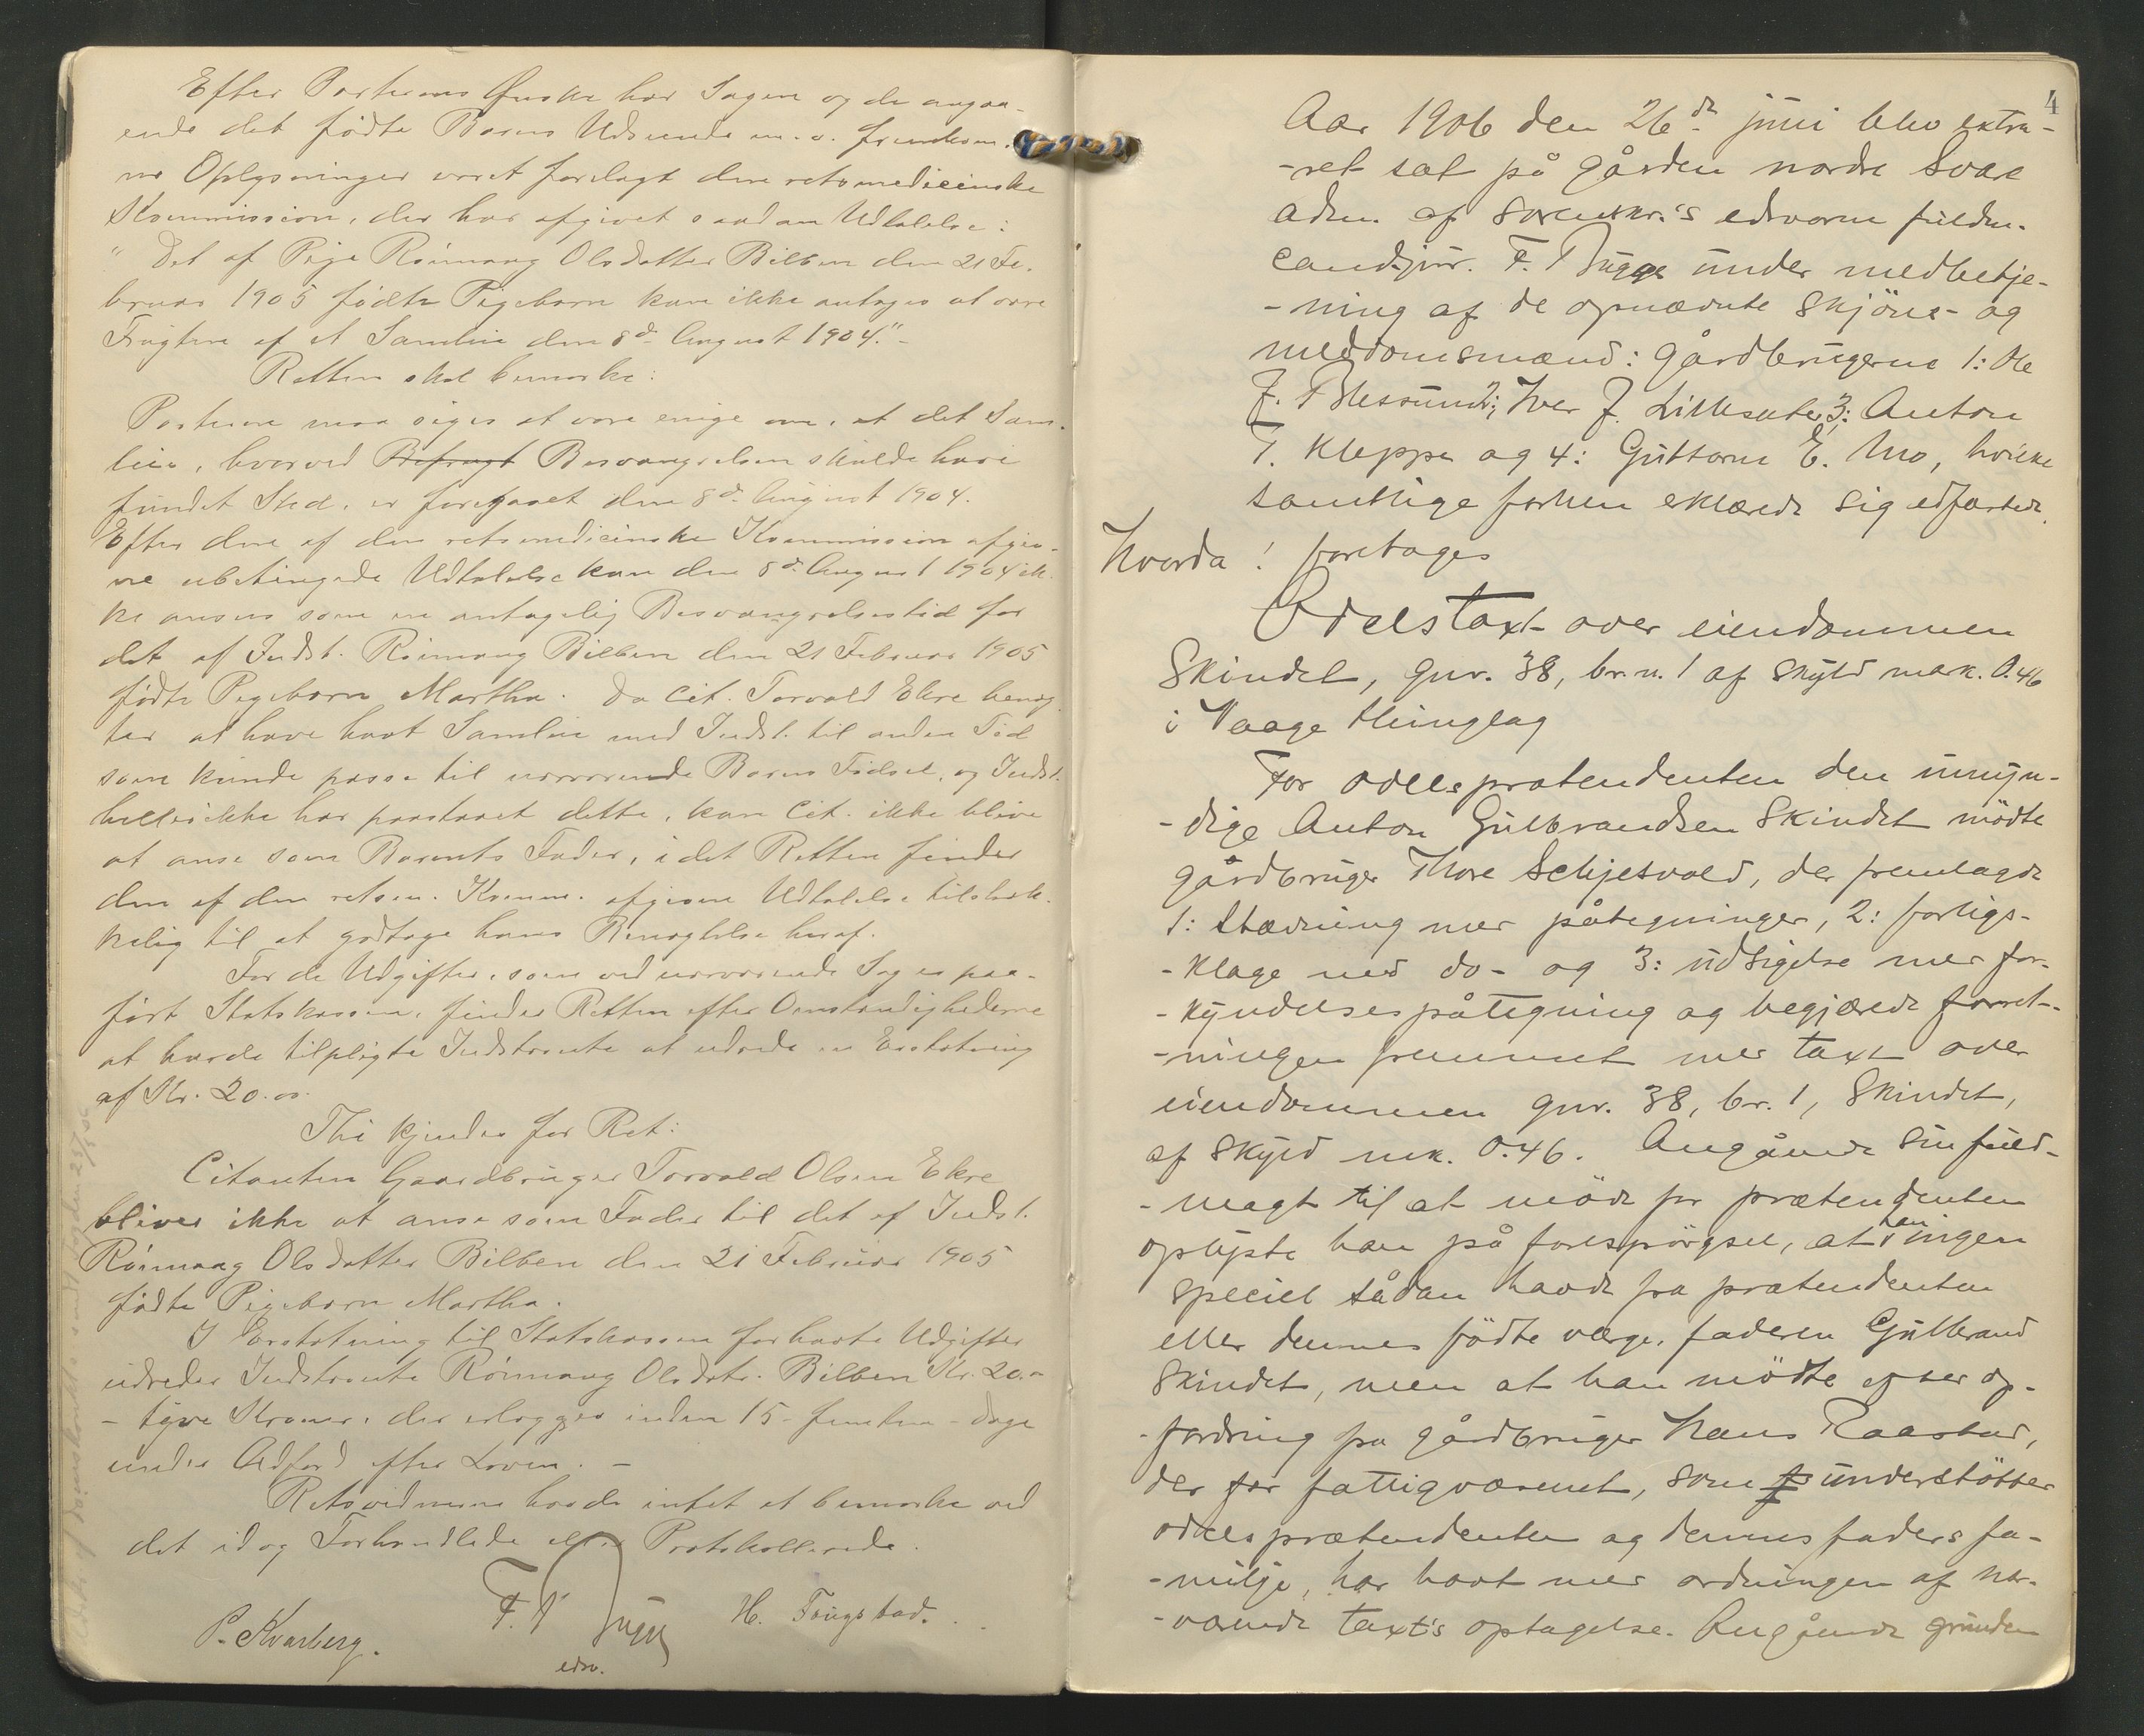 Efter Parternes Ønske har Sagen og de angaa-
ende det fødte Barns Udseende m. v. fremkom-
ne Oplysninger været forelagt den retsmedicinske
Kommission, der har afgivet saadan Udtalelse:
"Det af Pige Rönnaug Olsdatter Bilben den 21 Fe-
bruar 1905 fødte Pigebarn kan ikke antages at være
Frugten af et Samleie den 8de August 1904." -
Retten skal bemærke:
Parterne maa siges at være enige om, at det Sam-
leie, hvorved Befrugt Besvangrelsen skulde have
fundet Sted, er foregaaet den 8de August 1904.
Efter den af den retsmedicinske Kommission afgiv-
ne ubetingede Udtalelse kan den 8de August 1904 ik-
ke ansees som en antagelig Besvangrelsestid for
det af Indst. Rönnaug Bilben den 21 Februar 1905
fødte Pigebarn Martha. Da Cit. Torvald Ekre benæg-
ter at have havt Samleie med Indst. til anden Tid
som kunde passe til nærværende Barns Fødsel, og Indst.
heller ikke har paastaaet dette, kan Cit. ikke blive
at anse som Barnets Fader, idet Retten finder
den af den retsm. Komm. afgivne Udtalelse tilstræk-
kelig til at godtage hans Benægtelse heraf.
For de Udgifter, som ved nærværende Sag er paa-
ført Statskassen, finder Retten efter Omstændighederne
at burde tilpligte Indstevnte at udrede en Erstatning
af Kr. 20.00.
Thi kjendes for Ret:
Citanten Gaardbruger Torvald Olsen Ekre
bliver ikke at anse som Fader til det af Indst.
Rönnaug Olsdatter Bilben den 21 Februar 1905
fødte Pigebarn Martha.
I Erstatning til Statskassen for havte Udgifter
udreder Indstevnte Rönnaug Olsdtr. Bilben Kr. 20.-
- tyve Kroner, der erlægges inden 15 - femten - dage
under Adfærd efter Loven. -
Retsvidnerne havde intet at bemærke ved
det idag Forhandlede eller Protokollerede.
P. Kvarberg.
F. Bugge
edsv.
H. Tougstad.
4
Aar 1906 den 26de juni blev extra-
-ret sat på gården nordre Svare
adm. af sorenskr.'s edsvorne fuldm.
cand. jur. F. Bugge under medbetje-
-ning af de opnævnte skjöns- og
meddomsmænd: gårdbrugerne 1: Ole
J. Blessum 2: Iver J. Lillesæter, 3: Anton
T. Kleppe og 4: Guttorm E. Mo, hvilke
samtlige forhen erklærede sig edfæstede.
Hvorda! foretages
Odelstaxt over eiendommen
Skindet, gnr. 38, br.n. 1 af skyld mark. 0.46
i Vaage thinglag
For odelsprætendenten den umyn-
-dige Anton Gulbrandsen Skindet mödte
gårdbruger Thore Schjesvold, der fremlagde
1: Stævning med påtegninger, 2: forligs-
-klage med do- og 3: udsigelse med for-
-kyndelsespåtegning og begjærede forret-
-ningen fremmet med taxt over
eiendommen gnr. 38, br. 1, Skindet,
af skyld mk. 0.46. Angående sin fuld-
-magt til at möde for prætendenten
oplyste han på forespörgsel, at han ingen
speciel sådan havde fra prætendenten
eller dennes födte værge, faderen Gulbrand
Skindet, men at han mödte efter op-
-fordring fra gårdbruger Hans Raastad,
der for fattigvæsenet, som understötter
odelsprætendenten og dennes faders fa-
-milje, har havt med ordningen af nær-
-værende taxt's optagelse. Angående grunden